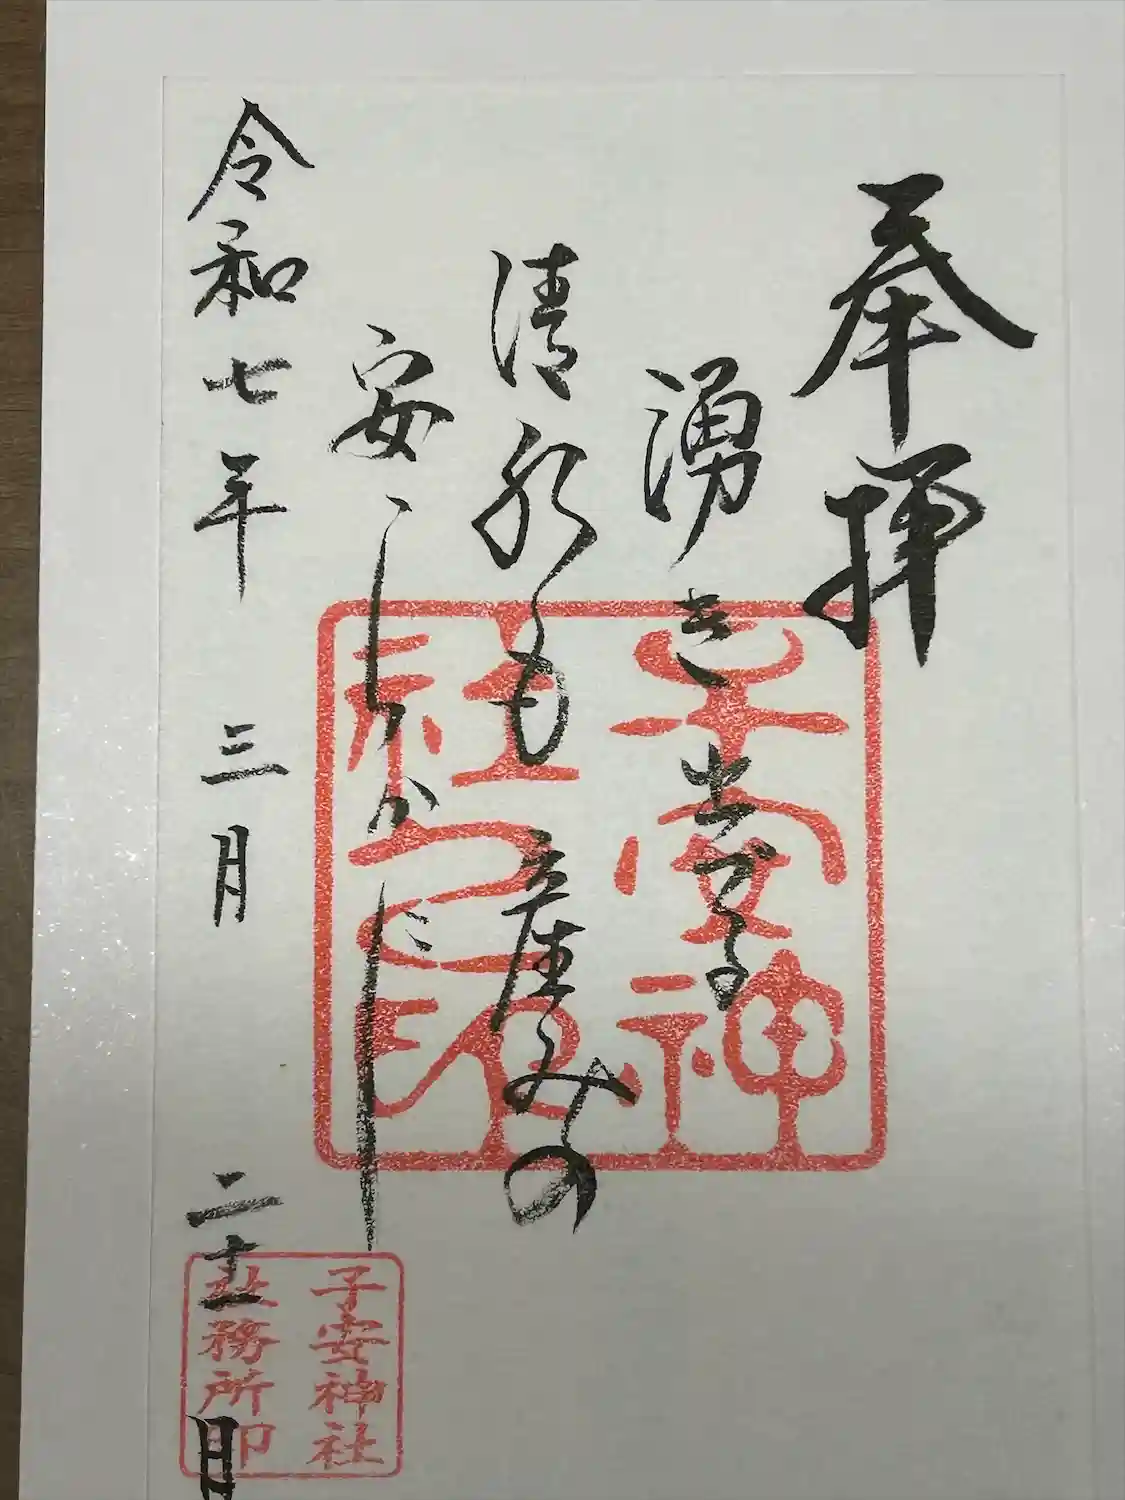 奉拝
湧き出づる
清水も産みの
安らかに
令和七年 三月 二十一日
子安神
社
子安神社
社務所印